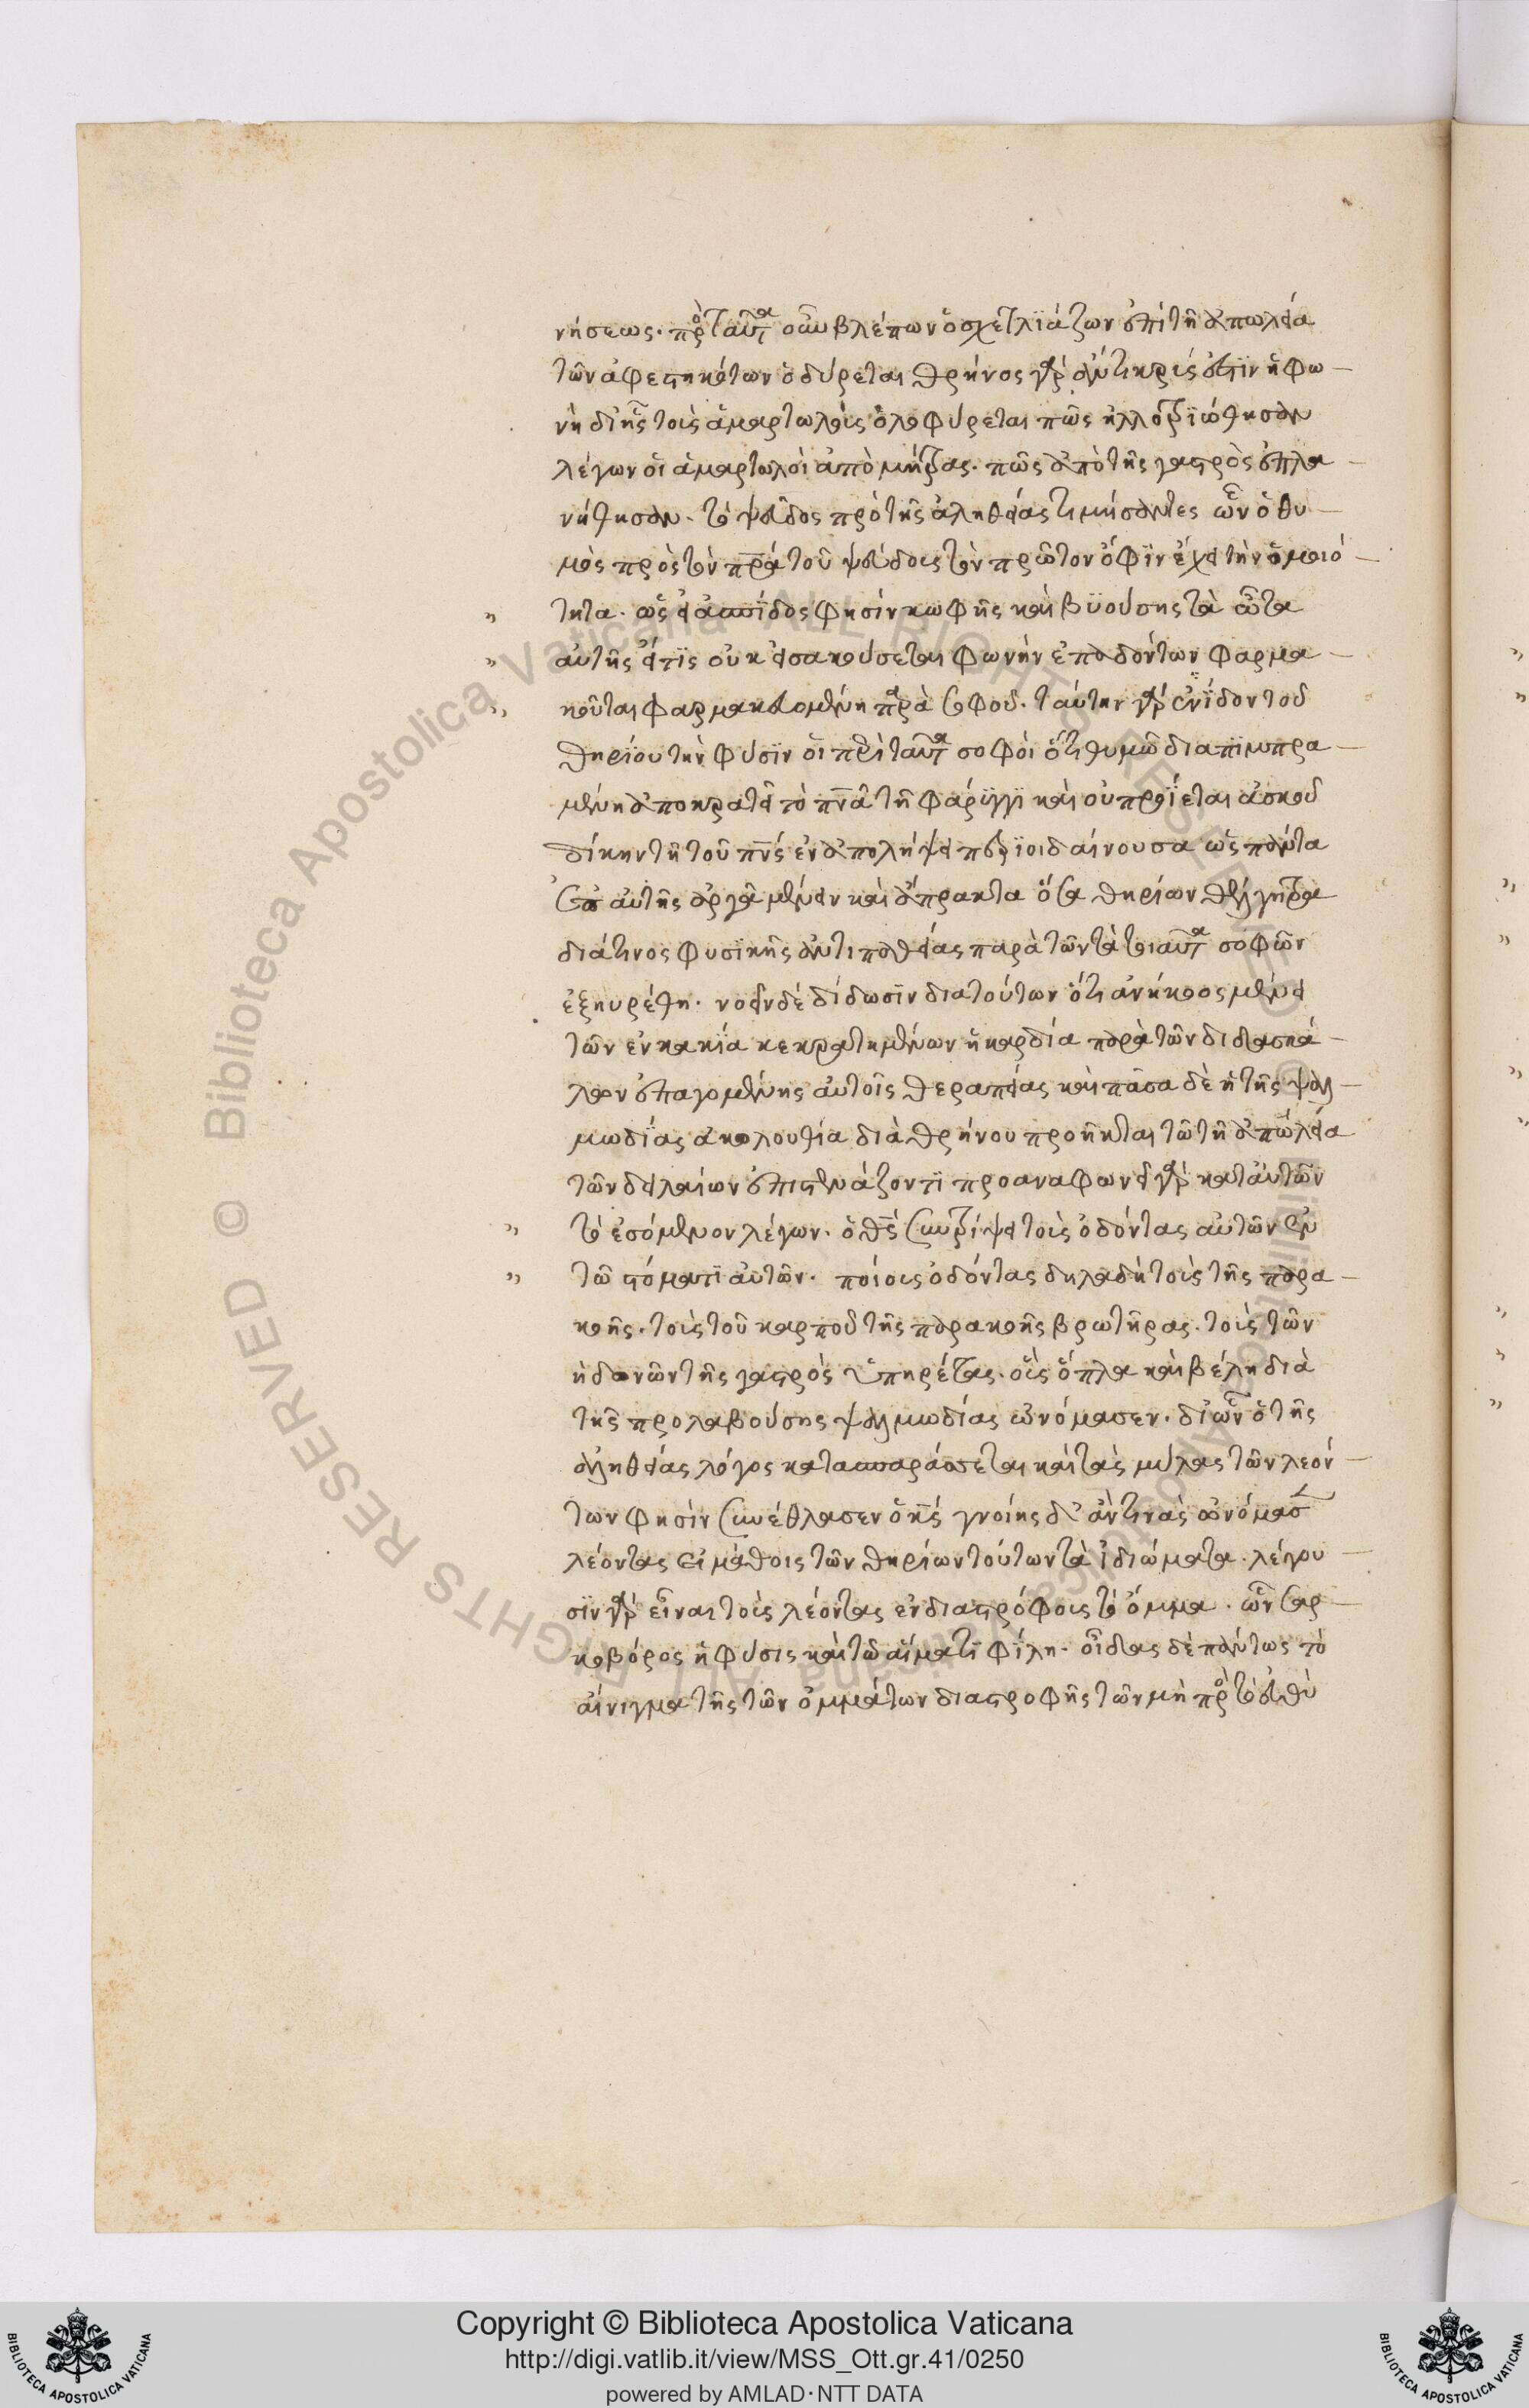 νήσεως. πρὸς ταῦτα οὖν βλέπων ὁ σχετλϊάζων ἐπὶ τῆ ἀπωλεία
τῶν ἀφεστηκότων ὀδύρεται θρήνος γὰρ ἀντικρύς ἐστϊν ἡ φω
νὴ δι' ἧς τοὺς ἁμαρτωλοὺς ὀλοφύρεται πῶς ηλλοτρϊώθησαν
λέγων οἱ ἁμαρτωλοὶ ἀπὸ μήτρας. πῶς ἀπὸ τῆς γαστρὸς ἐπλα
νήθησαν. τὸ ψεῦδος πρὸ τῆς ἀληθείας τιμήσαντες ὧν ὁ θυ
μὸς πρὸς τὸν πρα τοῦ ψεύδους τὸν πρῶτον ὄφϊν ἔχει τὴν ὁμοιό
τητα. ὡς εἰ ἀσπΐδος φησίν κωφῆς καὶ βϋούσης τὰ ὦτα
αὐτῆς ἥτϊς οὐκ εἰσακούσεται φωνὴν ἐπαδόντων φαρμα
κοῦται φαρμακευομένη παρὰ σοφοῦ. ταύτην γὰρ ἐνΐδον τοῦ
θηρίου τὴν φύσϊν οἱ περὶ ταῦτα σοφοὶ ὅτι θυμῶ διαπϊμπρα
μένη ἀποκρατεῖ τὸ πνα τῆ φάρϋγγϊ καὶ οὐ προΐεται ἀσκοῦ
δίκην τῆ τοῦ πνς ἐναπολήψει περϊοιδαίνουσα ὡς πάντα
ἐπ' αὐτῆς ἀργὰ μένειν καὶ ἄπρακτα ὅσα θηρίων θελγητρα
διά τινος φυσϊκῆς ἀντιπαθείας παρὰ τῶν τὰ τοιαῦτα σοφῶν
ἐξηυρέθη. νοεῖν δὲ δίδωσϊν δια τούτων ὅτι ἀνήκοος μένει
τῶν ἐν κακΐα κεκρατημένων ἡ καρδία παρὰ τῶν διδασκά
λων ἐπαγομένης αὐτοῖς θεραπείας καὶ πᾶσα δὲ ἡ τῆς ψαλ
μωδΐας ἀκολουθία διὰ θρήνου προῆκται τῶ τῆ ἀπωλεία
τῶν δειλαίων ἐπιστενάζοντϊ προαναφωνεῖ γὰρ κατ' αὐτῶν
τὸ ἐσόμενον λέγων. ὁ θς συντρίψει τοὺς ὀδόντας αὐτῶν ἐν
τῶ στόματϊ αὐτῶν. ποίους ὀδόντας δηλαδὴ τοὺς τῆς παρα
κοῆς. τοὺς τοῦ καρποῦ τῆς παρακοῆς βρωτῆρας. τοὺς τῶν
ἡδονῶν τῆς γαστρὸς ὑπηρέτας. οὓς ὅπλα καὶ βέλη διὰ
τῆς προλαβούσης ψαλμωδίας ὠνόμασεν. δι' ὧν ὁ τῆς
ἀληθείας λόγος κατασπαράσσεται καὶ τὰς μύλας τῶν λεόν
των φησὶν συνέθλασεν ὁ κς γνοίης δ' ἂν τινὰς ὠνόμασε
λέοντας εἰ μάθοις τῶν θηρίων τούτων τὰ ἰδιώματα. λέγου
σϊν γὰρ εἶναι τοὺς λέοντας ἐνδιαστρόφους τὸ ὄμμα. ὧν σαρ
κοβόρος ἡ φύσις καὶ τῶ αἵματϊ φΐλη. οἶδας δὲ πάντως τὸ
αἴνιγμα τῆς τῶν ὀμμάτων διαστροφῆς τῶν μὴ πρὸς τὸ εὐθὺ
Copyright © Biblioteca Apostolica Vaticana
http://digi.vatlib.it/view/MSS_Ott.gr.41/0250
powered by AMLAD·NTT DATA